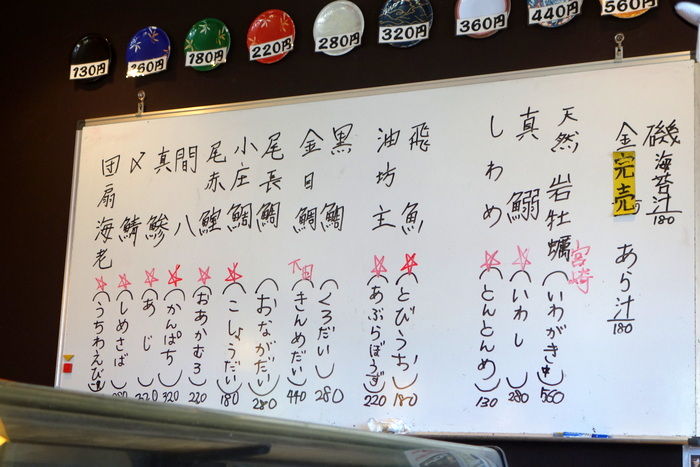 130円
160円
180円
220円
280円
320円
360円
440円
560円
磯海苔汁 180
完売
あら汁 180
天然 岩牡蠣 宮崎 (いわがき中) 560
真鰯 ☆(いわし) 280
しわめ ☆(とんとんめ) 130
飛魚 ☆(とびうお) 180
油坊主 ☆(あぶらぼうず) 220
黒鯛 (くろだい) 280
金目鯛 下田 (きんめだい) 440
尾長鯛 (おながだい) 280
小庄鯛 ☆(こしょうだい) 180
尾赤鯥 ☆(おあかむろ) 220
間八 ☆(かんぱち) 320
真鯵 ☆(あじ) 220
〆鯖 ☆(しめさば)
団扇海老 ☆(うちわえび)